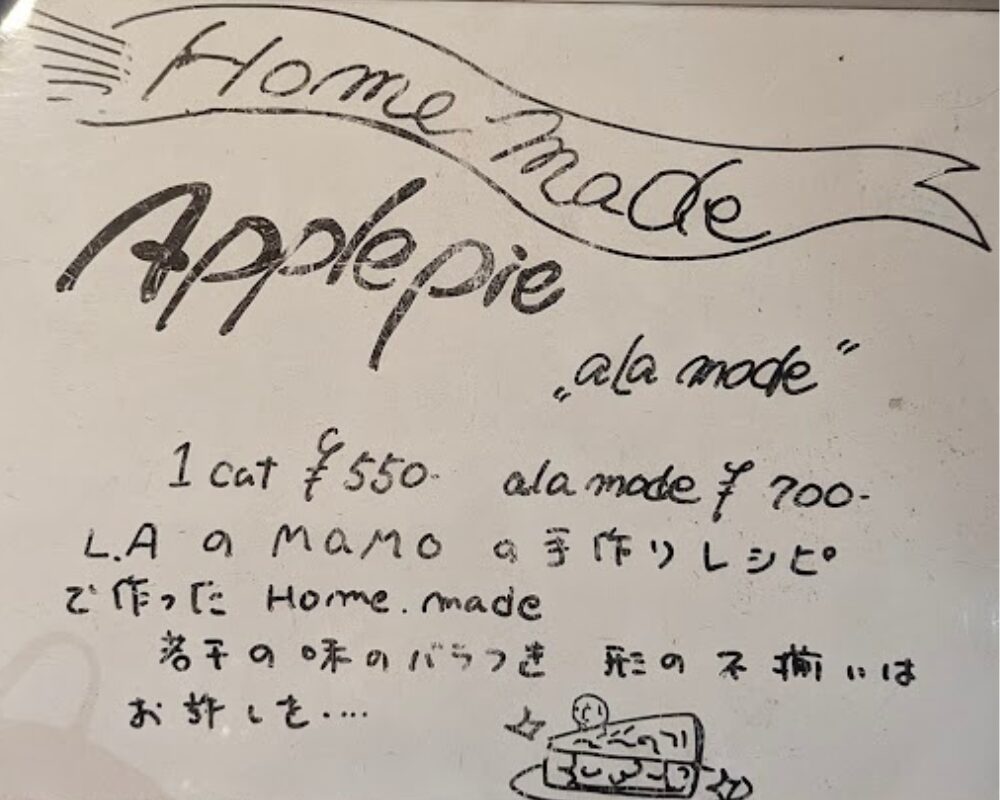 Home made
Apple pie
„ala mode”
1 cat ¥550- ala mode ¥700-
L.A の MaMo の手作りレシピ
で作った Home.made
若干の味のバラつき 形の不揃いは
お許しを‥‥